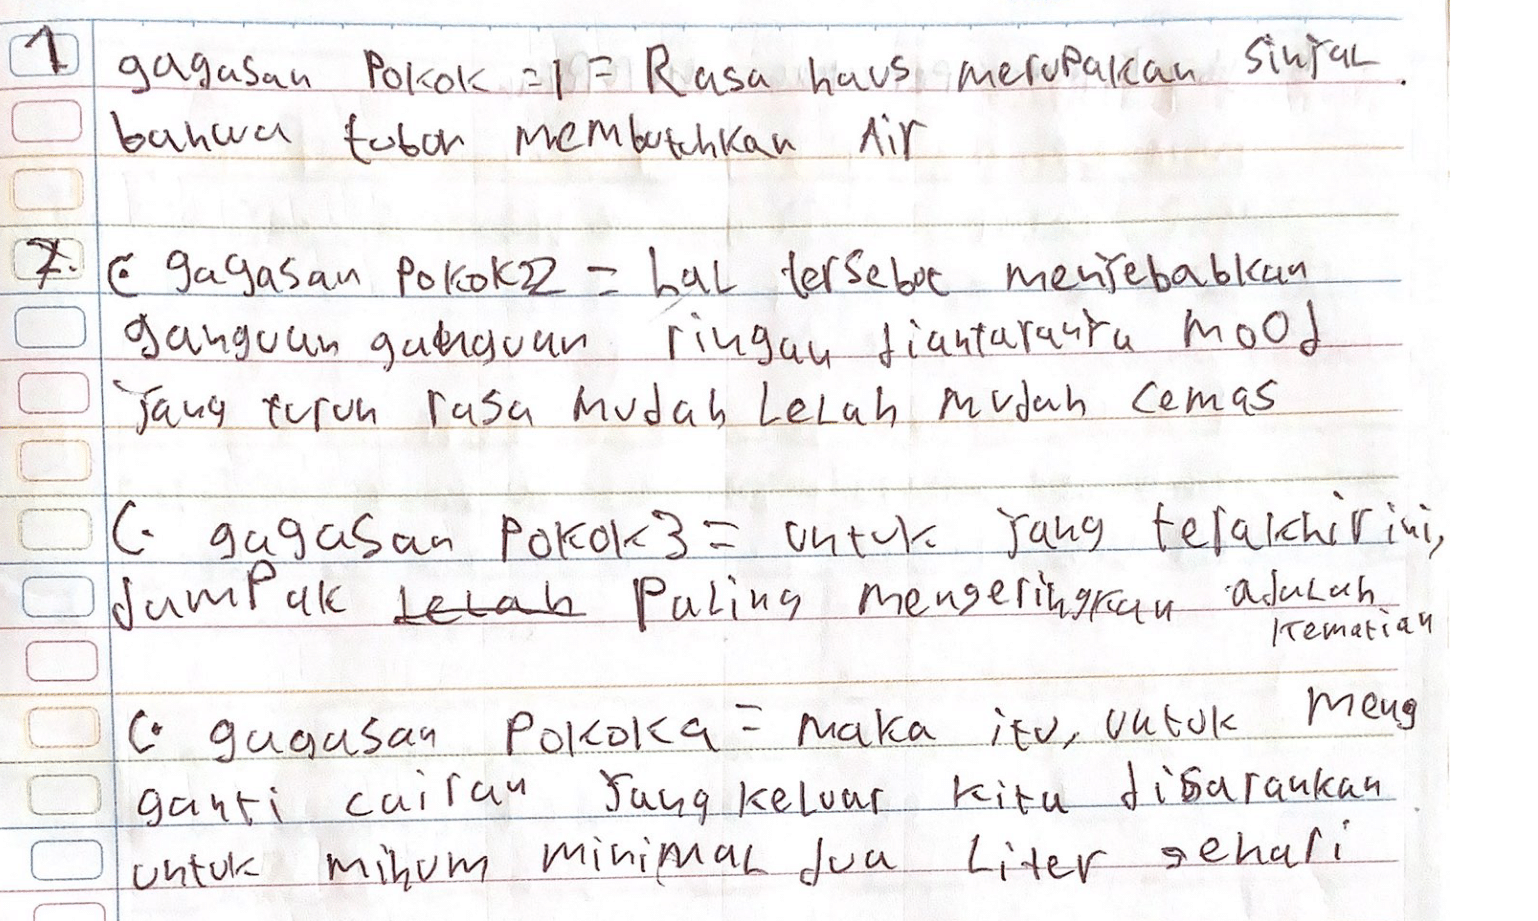 1 gagasan Pokok =1= Rasa haus merupakan sinyal.
bahwa tubuh membutuhkan Air
2. C. gagasan Pokok 2 = hal tersebut menyebabkan
ganguan ganguan ringan diantaranya mood
yang turun rasa mudah Lelah mudah cemas
C. gagasan Pokok 3 = untuk yang terakhir ini,
dampak Lelah Paling mengeringkan adalah
kematian
C. gagasan Pokok 4 = maka itu, untuk meng
ganti cairan yang keluar kita disarankan
untuk minum minimal dua Liter sehari